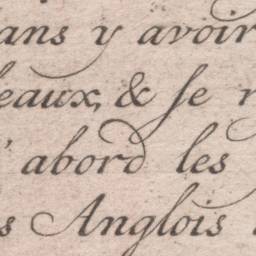 ans y avoir
eaux, & se
d'abord les
s Anglois